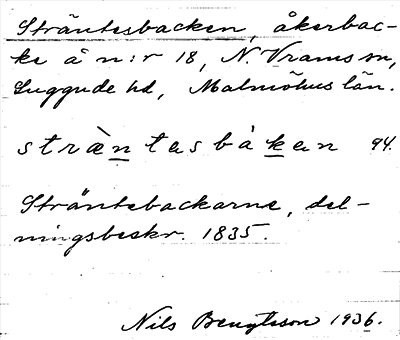 Sträntesbacken, åkerbac-
ke å n:r 18, N. Vrams sn,
Luggude hd, Malmöhus län.
strὰntasbákan 94.
Sträntebackarne, del-
ningsbeskr. 1835.
Nils Bengtsson 1936.